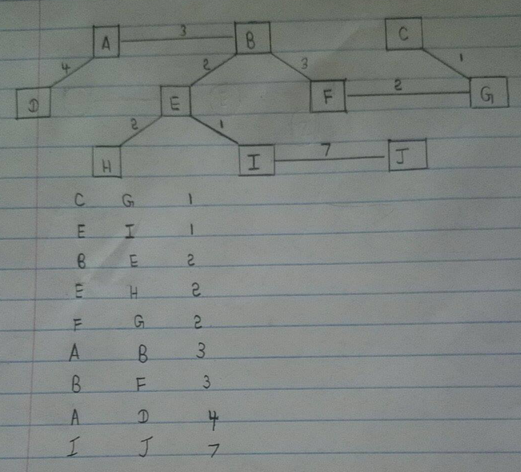 A 3 B C
4 2 3 1
D E F 2 G
2 1
H I 7 J
C G 1
E I 1
B E 2
E H 2
F G 2
A B 3
B F 3
A D 4
I J 7